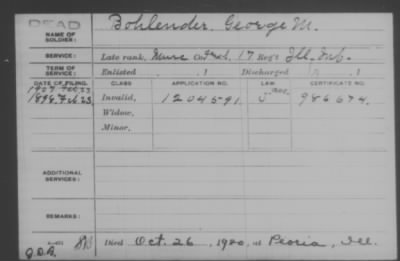 DEAD
NAME OF SOLDIER: Bohlender, George M.
SERVICE: Late rank, Musc Co. 17 Reg't Ill. Inf.
TERM OF SERVICE: Enlisted , 1 Discharged , 1
DATE OF FILING. CLASS APPLICATION NO. LAW CERTIFICATE NO.
1907 Feb 23
1898, Feb 23 Invalid, 1204591. 986674.
Widow,
Minor,
ADDITIONAL SERVICES:
REMARKS:
Died Oct. 26, 1920, at Peoria, Ill.